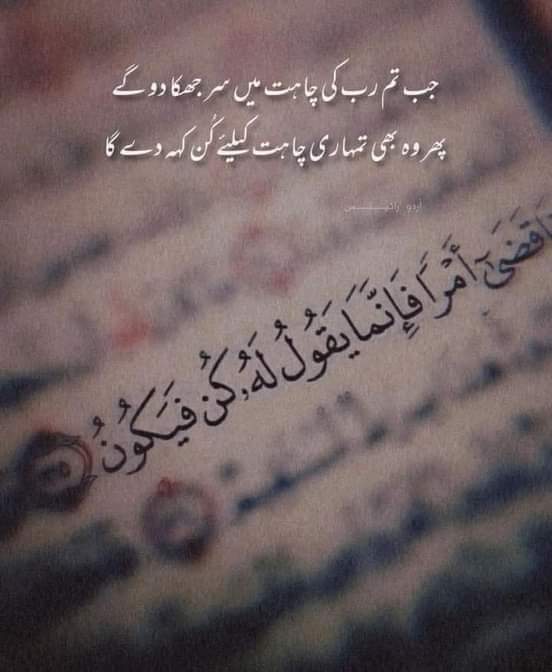 جب تم رب کی چاہت میں سر جھکا دو گے
پھر وہ بھی تمہاری چاہت کیلئے کُن کہہ دے گا
قَضَىٰٓ أَمْرًا فَإِنَّمَا يَقُولُ لَهُۥ كُن فَيَكُونُ